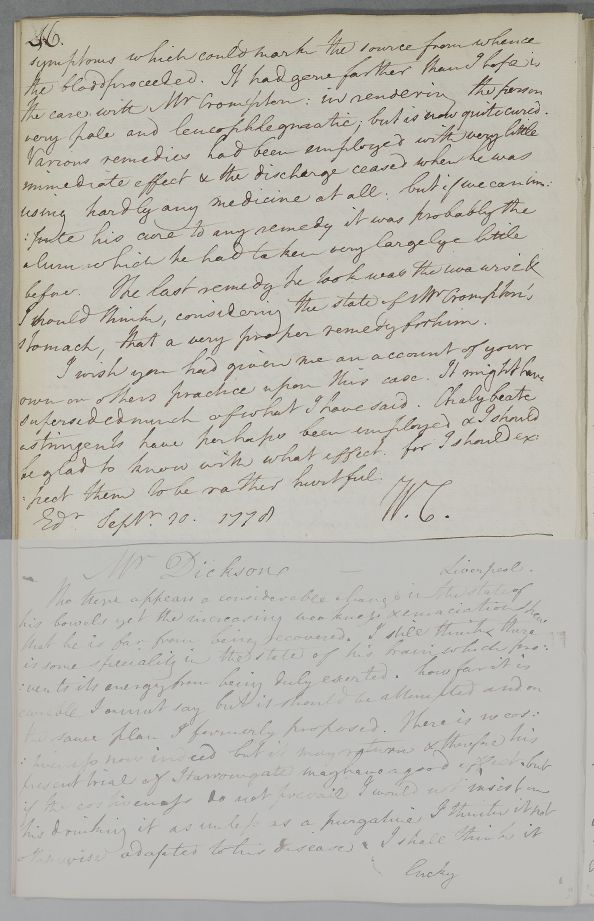 46.
symptoms which could mark the source from whence
the blood proceeded. It had gone farther than I hope is
the case with Mr Crompton: in rendering the person
very pale and leucophlegmatic, but is now quite cured.
Various remedies had been employed with very little
immediate effect & the discharge ceased when he was
using hardly any medicine at all: but if we can im:
:pute his cure to any remedy it was probably the
alum which he had taken very largely a little
before. The last remedy he took was the uva ursi &
I should think, considering the state of Mr Crompton's
stomach, that a very proper remedy for him.
I wish you had given me an account of your
own or others practice upon this case. It might have
superseded much of what I have said. Chalybeate
astringents have perhaps been employed & I should
be glad to know with what effect. for I should ex:
:pect them to be rather hurtful.
Edr. Septr. 20. 1778 W. C.
Mr Dickson — Liverpool.
Tho there appears a considerable change in the state of
his bowels yet the increasing weakness & emaciation shew
that he is far from being recovered. I still think there
is some speciality in the state of his brain, which pre:
:vents its energy from being duly exerted. how far it is
cureable I cannot say but it should be attempted and on
the same plan I formerly proposed. There is no cos:
:tiveness now indeed but it may return & therefore his
present trial of Harrowgate may have a good effect, but
if the costiveness do not prevail I would not insist on
his drinking it as unless as a purgative I think it not
otherwise adapted to his disease. I shall think it
lucky